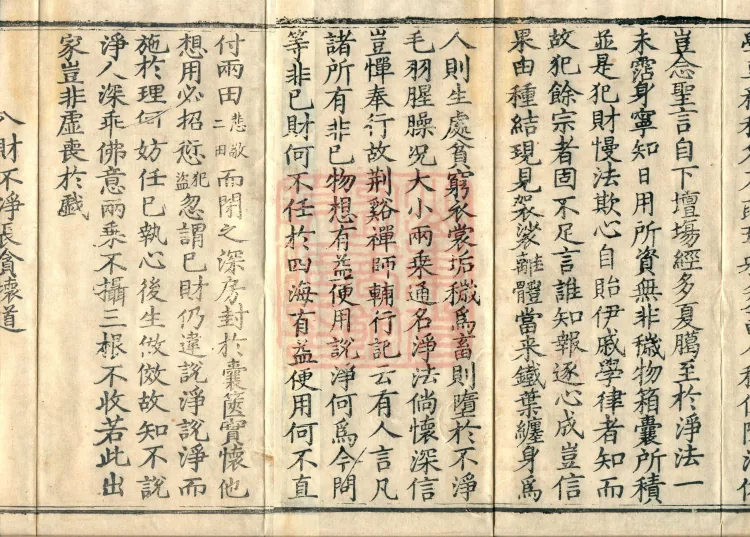 豈念聖言自下壇場經多夏臈至於淨法一
未霑身寧知日用所資無非穢物箱囊所積
並是犯財慢法欺心自貽伊戚學律者知而
故犯餘宗者固不足言誰知報逐心成豈信
果由種結現見袈裟離體當来鐵葉纏身爲
人則生處貧窮衣裳垢穢爲畜則墮於不淨
毛羽腥臊况大小兩乗通名淨法倘懷深信
豈憚奉行故荆谿禪師輔行記云有人言凡
諸所有非已物想有益便用說淨何爲今問
等非已財何不任於四海有益便用何不直
付兩田悲敬二田而閇之深房封於囊篋實懷他
想用必招愆犯盜忽謂已財仍違說淨說淨而
施於理何妨任已執心後生倣傚故知不說
淨人深乖佛意兩乗不攝三根不收若此出
家豈非虛喪於戲
八財不淨長貪壞道